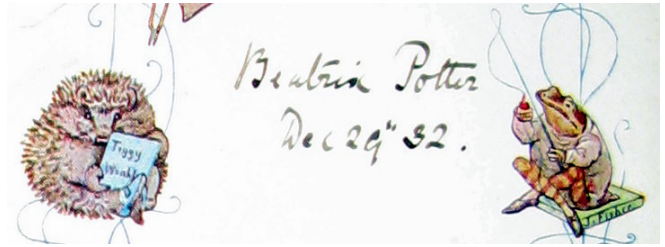 Beatrix Potter
Dec 29th 32.
Tiggy
Winkle
J. Fisher